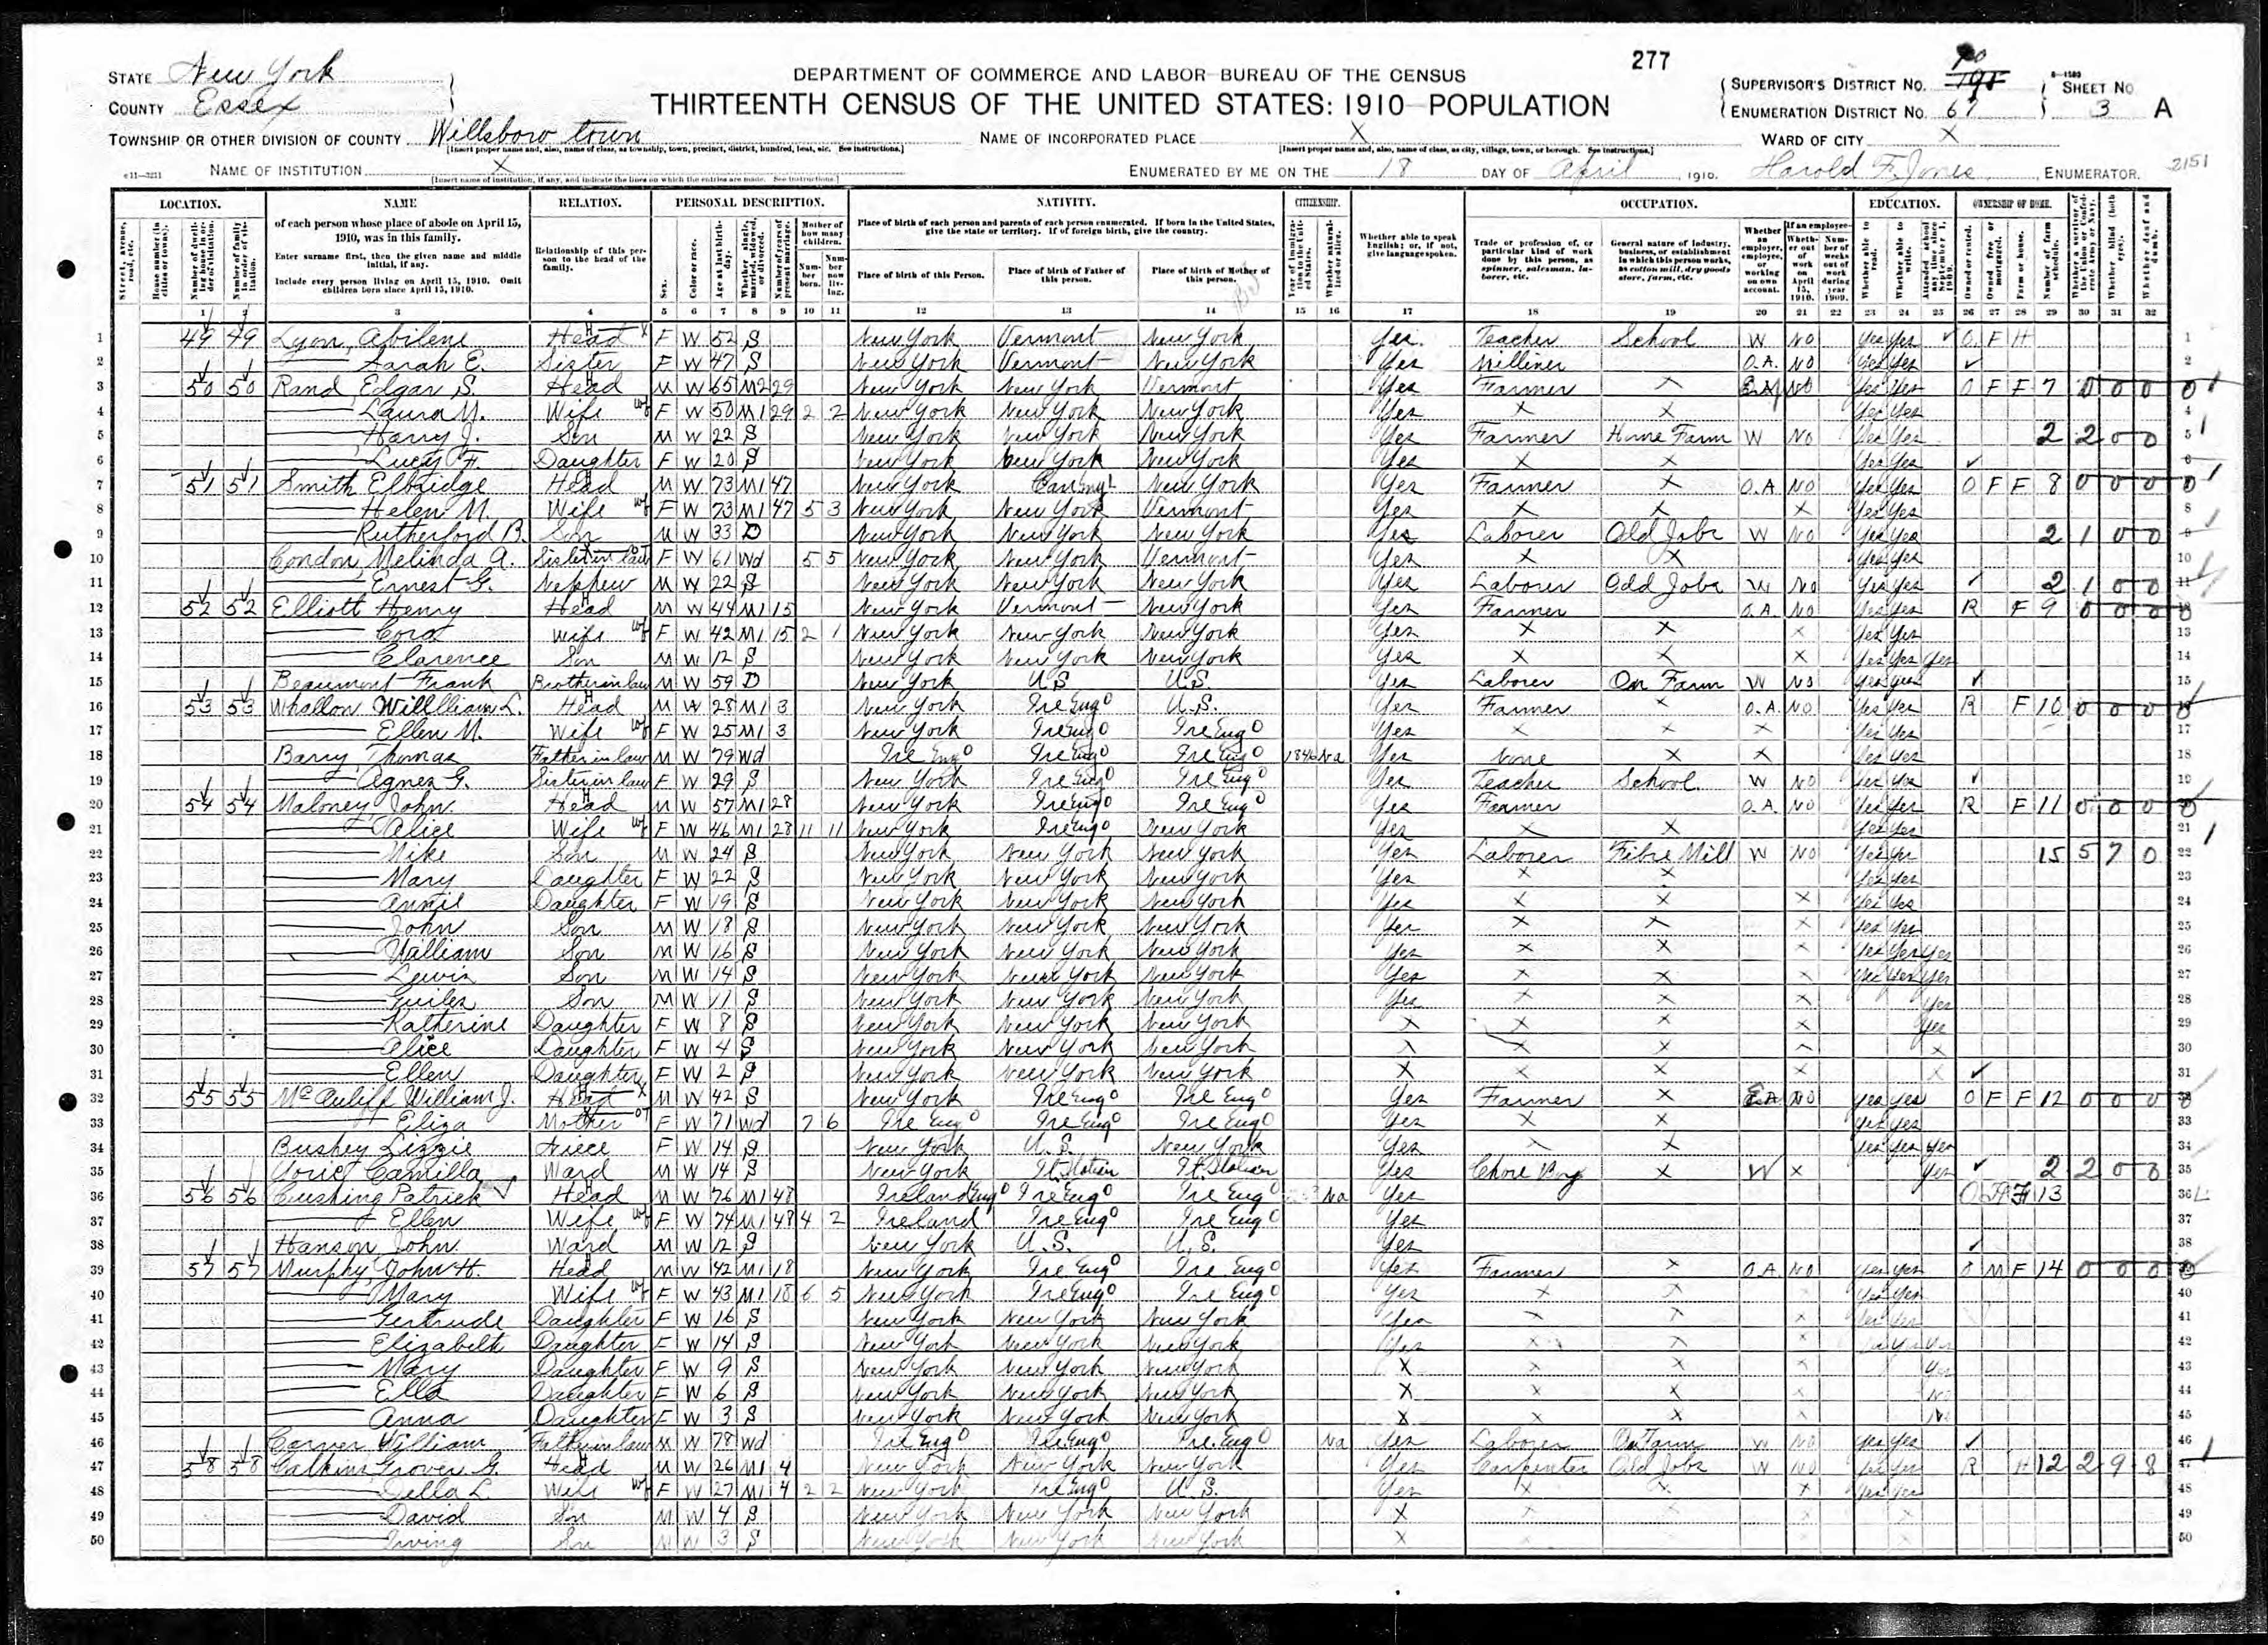 277
STATE New York
DEPARTMENT OF COMMERCE AND LABOR—BUREAU OF THE CENSUS
COUNTY Essex
THIRTEENTH CENSUS OF THE UNITED STATES: 1910—POPULATION
SUPERVISOR'S DISTRICT No.
ENUMERATION DISTRICT No. 67
SHEET No 3 A
TOWNSHIP OR OTHER DIVISION OF COUNTY Willsboro town
NAME OF INCORPORATED PLACE X
WARD OF CITY X
NAME OF INSTITUTION X
ENUMERATED BY ME ON THE 18 DAY OF April, 1910. Harold F. Jones, ENUMERATOR. 2151
LOCATION. NAME RELATION. PERSONAL DESCRIPTION. NATIVITY. CITIZENSHIP. OCCUPATION. EDUCATION. OWNERSHIP OF HOME.
of each person whose place of abode on April 15, 1910, was in this family.
Enter surname first, then the given name and middle initial, if any.
Include every person living on April 15, 1910. Omit children born since April 15, 1910.
Relationship of this person to the head of the family.
Place of birth of each person and parents of each person enumerated. If born in the United States, give the state or territory. If of foreign birth, give the country.
Place of birth of this Person. Place of birth of Father of this person. Place of birth of Mother of this person.
Whether able to speak English; or, if not, give language spoken.
1 2 3 4 5 6 7 8 9 10 11 12 13 14 15 16 17 18 19 20 21 22 23 24 25 26 27 28 29 30 31 32
1 49 49 Lyon, Abilene Head F W 52 S New York Vermont New York Yes Teacher School W No Yes Yes O F H
2 Sarah E. Sister F W 47 S New York Vermont New York Yes Milliner O.A. No Yes Yes
3 50 50 Rand, Edgar S. Head M W 65 M2 29 New York New York Vermont Yes Farmer X No Yes Yes O F F 7 0 0 0 0
4 Laura M. Wife F W 50 M1 29 2 2 New York New York New York Yes X X Yes Yes
5 Harry J. Son M W 22 S New York New York New York Yes Farmer Home Farm W No Yes Yes 2 2 0 0
6 Lucy F. Daughter F W 20 S New York New York New York Yes X X Yes Yes
7 51 51 Smith Elbridge Head M W 73 M1 47 New York Can Eng New York Yes Farmer X O.A No Yes Yes O F F 8 0 0 0 0
8 Helen M. Wife F W 73 M1 47 5 3 New York New York Vermont Yes X X X Yes Yes
9 Rutherford B. Son M W 33 D New York New York New York Yes Laborer Odd Jobs W No Yes Yes 2 1 0 0
10 Condon, Melinda A. Sister in law F W 61 Wd 5 5 New York New York Vermont Yes X X Yes Yes
11 Ernest G. Nephew M W 22 S New York New York New York Yes Laborer Odd Jobs W No Yes Yes 2 1 0 0
12 52 52 Elliott Henry Head M W 44 M1 15 New York Vermont New York Yes Farmer O.A. No Yes Yes R F 9 0 0 0 0
13 Cora Wife F W 42 M1 15 2 1 New York New York New York Yes X X X Yes Yes
14 Clarence Son M W 12 S New York New York New York Yes X X X Yes Yes Yes
15 Beaumont Frank Brother in law M W 59 D New York U S U.S. Yes Laborer On Farm W No Yes Yes
16 53 53 Whallon Willlliam L. Head M W 28 M1 3 New York Ire Eng U.S. Yes Farmer X O.A. No Yes Yes R F 10 0 0 0 0
17 Ellen M. Wife F W 25 M1 3 New York Ire Eng Ire Eng Yes X X X Yes Yes
18 Barry, Thomas Father in law M W 79 Wd Ire Eng Ire Eng Ire Eng 1846 Na Yes None X X Yes Yes
19 Agnes G. Sister in law F W 29 S New York Ire Eng Ire Eng Yes Teacher School. W No Yes Yes
20 54 54 Maloney, John. Head M W 57 M1 28 New York Ire Eng Ire Eng Yes Farmer O.A. No Yes Yes R F 11 0 0 0 0
21 Alice Wife F W 46 M1 28 11 11 New York Ire Eng New York Yes X X Yes Yes
22 Mike Son M W 24 S New York New York New York Yes Laborer Fibre Mill W No Yes Yes 15 5 7 0
23 Mary Daughter F W 22 S New York New York New York Yes X X Yes Yes
24 Annie Daughter F W 19 S New York New York New York Yes X X X Yes Yes
25 John Son M W 18 S New York New York New York Yes X X X Yes Yes
26 William Son M W 16 S New York New York New York Yes X X X Yes Yes Yes
27 Lewis Son M W 14 S New York New York New York Yes X X X Yes Yes Yes
28 Guiles Son M W 11 S New York New York New York Yes X X X Yes
29 Katherine Daughter F W 8 S New York New York New York X X X X Yes
30 Alice Daughter F W 4 S New York New York New York X X X X X
31 Ellen Daughter F W 2 S New York New York New York X X X X X
32 55 55 McAuliff William J. Head M W 42 S New York Ire Eng Ire Eng Yes Farmer X No Yes Yes O F F 12 0 0 0 0
33 Eliza Mother F W 71 Wd 7 6 Ire Eng Ire Eng Ire Eng Yes X X Yes Yes
34 Bushey Lizzie Niece F W 14 S New York U.S. New York Yes X X Yes Yes Yes
35 Camilla Ward M W 14 S New York It. Italian It. Italian Yes Chore Boy X W X Yes 2 2 0 0
36 56 56 Cushing Patrick Head M W 76 M1 48 Ireland Eng Ire Eng Ire Eng Na Yes O 13
37 Ellen Wife F W 74 M1 48 4 2 Ireland Ire Eng Ire Eng Yes
38 Hanson, John. Ward M W 12 S New York U.S. U.S. Yes
39 57 57 Murphy, John H. Head M W 42 M1 18 New York Ire Eng Ire Eng Yes Farmer X O.A. No Yes Yes O M F 14 0 0 0 0
40 Mary Wife F W 43 M1 18 6 5 New York Ire Eng Ire Eng Yes X X Yes Yes
41 Gertrude Daughter F W 16 S New York New York New York Yes X X X Yes Yes
42 Elizabeth Daughter F W 14 S New York New York New York Yes X X X Yes Yes Yes
43 Mary Daughter F W 9 S New York New York New York X X X X Yes
44 Ella Daughter F W 6 S New York New York New York X X X X No
45 Anna Daughter F W 3 S New York New York New York X X X X No
46 Carver William Father in law M W 78 Wd Ire Eng Ire Eng Ire. Eng Na Yes Laborer On Farm W No Yes Yes
47 58 58 Calkins Grover G. Head M W 26 M1 4 New York New York New York Yes Carpenter Odd Jobs W No Yes Yes R H 12 2 9 8
48 Della L. Wife F W 27 M1 4 2 2 New York Ire Eng U.S. Yes X X X Yes Yes
49 David Son M W 4 S New York New York New York X X X
50 Irving Son M W 3 S New York New York New York X